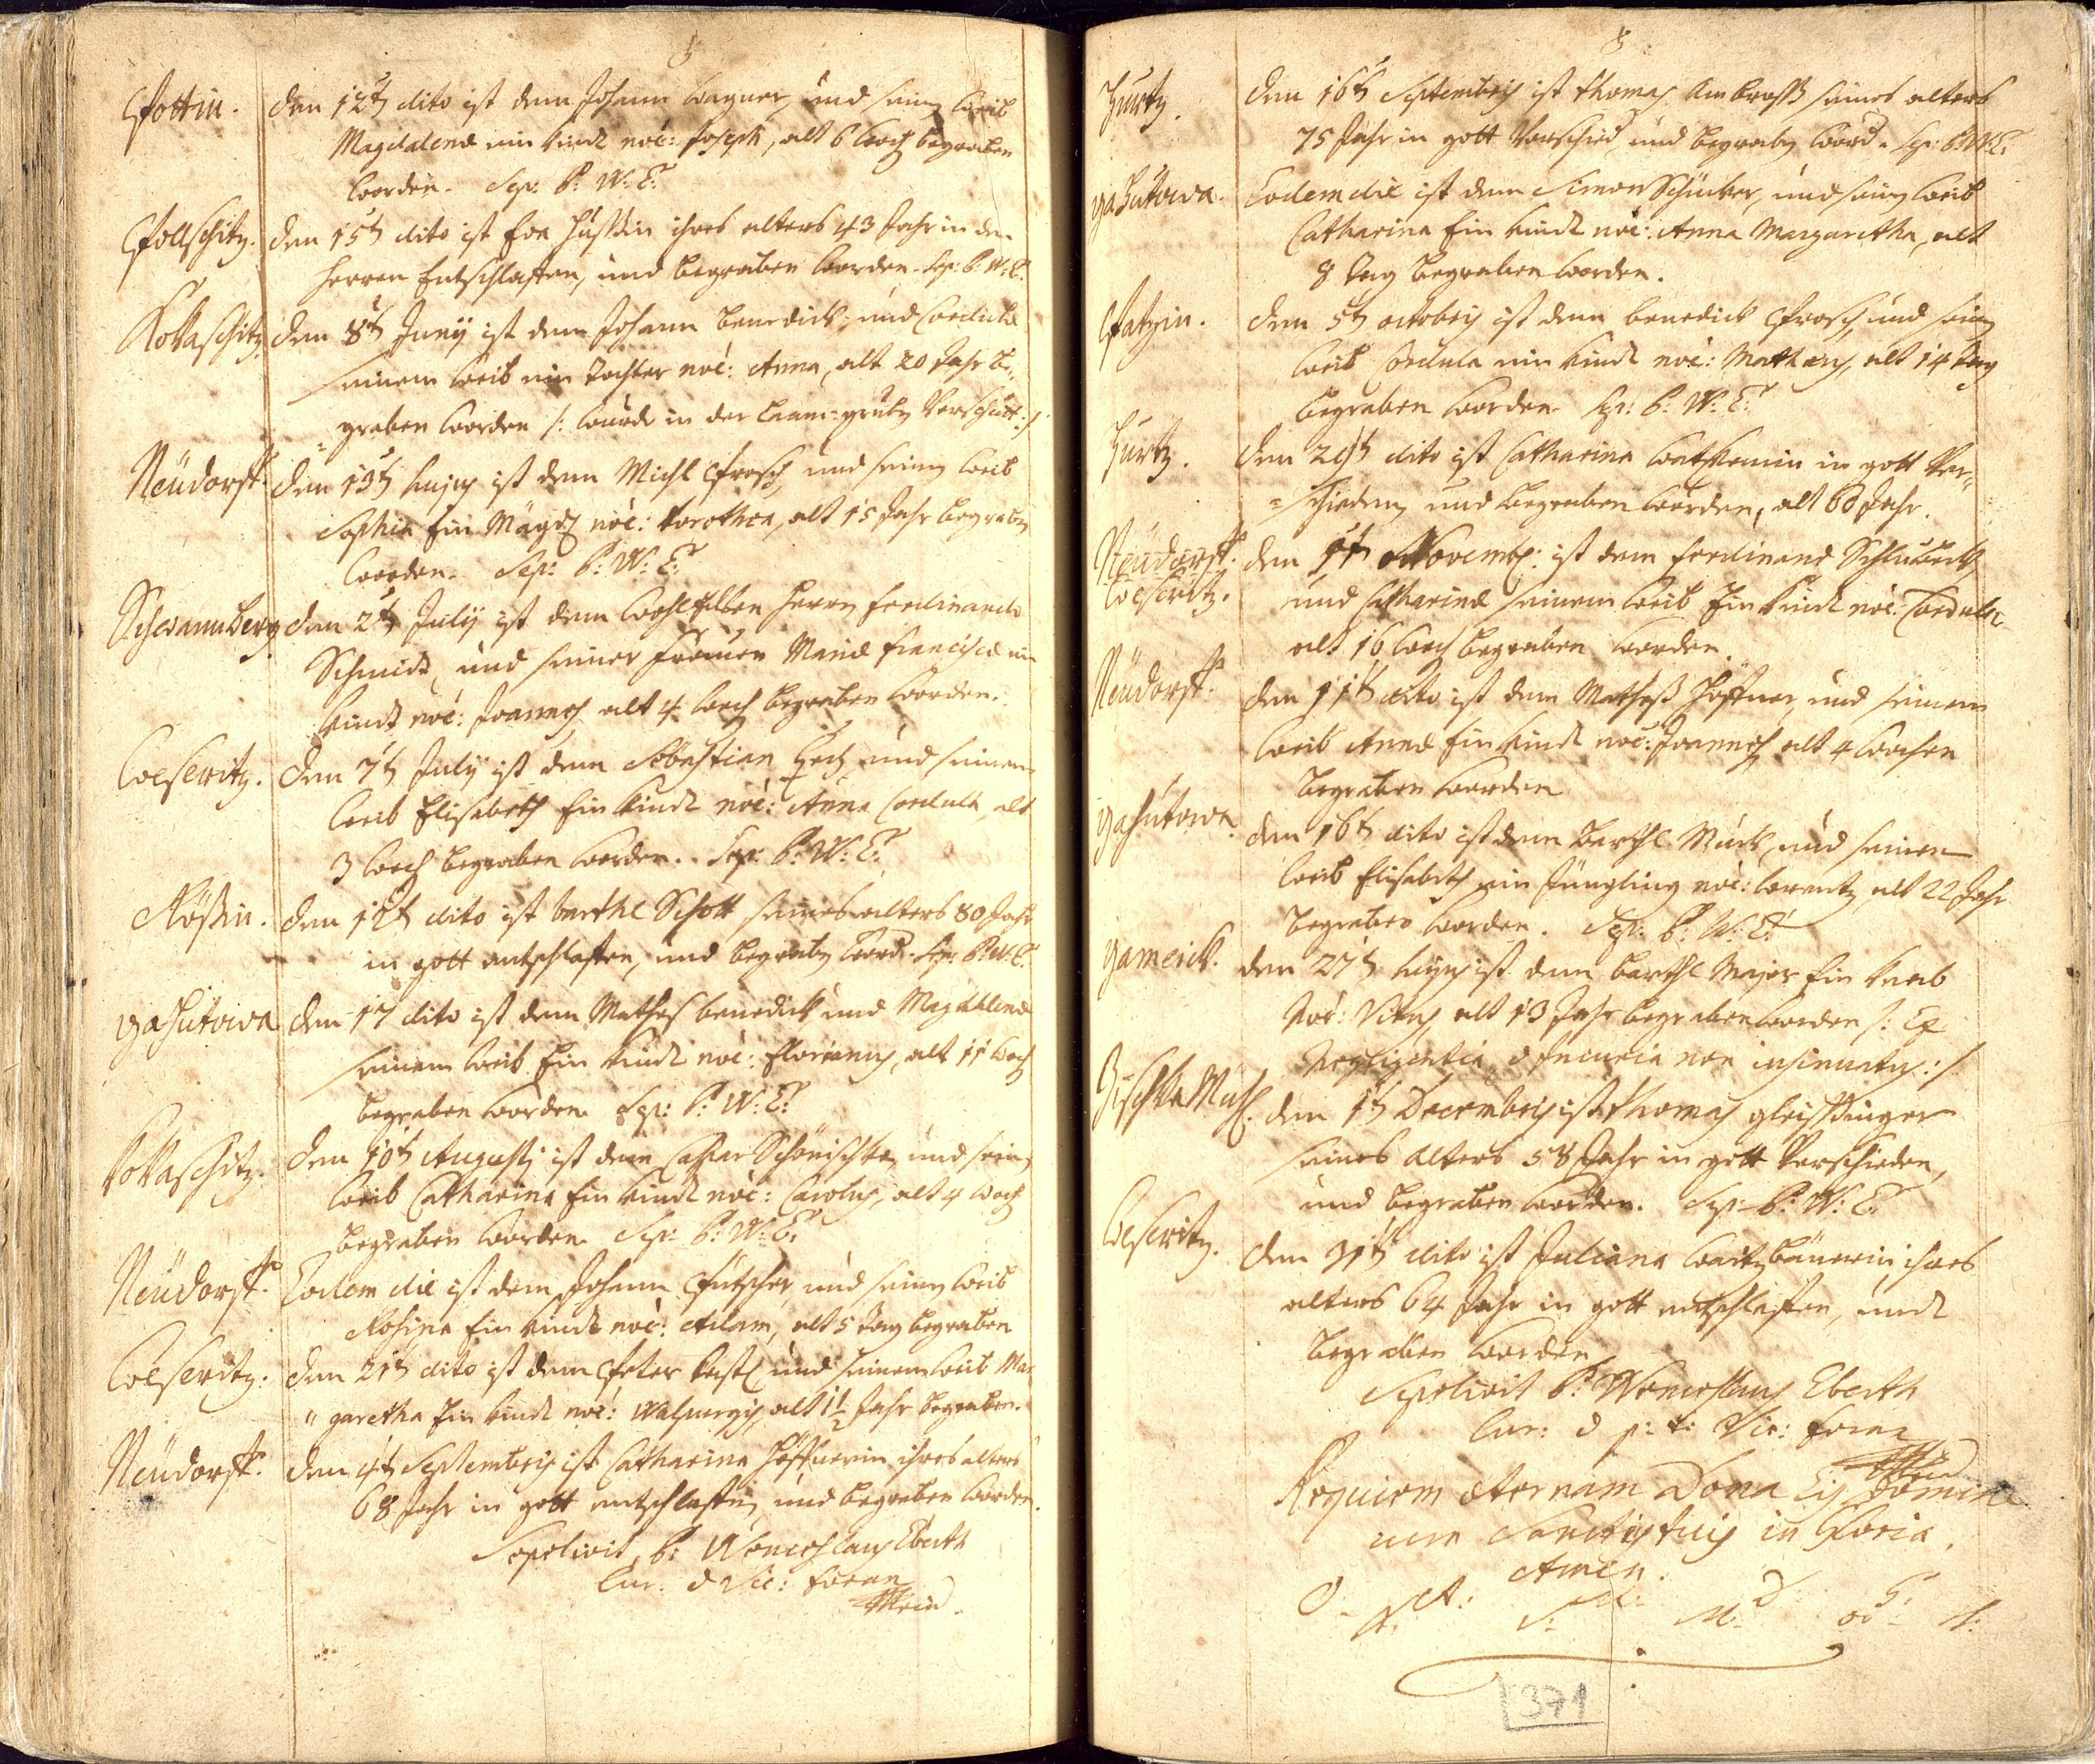 Pfottin. den 12t dito ist dem Johann Wagner, und seiny Weib
Magdalena ein Kindt noē: Joseph, alt 6 Woch begraben
worden. Sep: P: W: E:
Pfollschitz. den 15t dito ist Eva ihres alters 43 Jahr in den
Herren Entschlaffen, und begraben worden. Sep: P: W: E:
Kokaschitz. den 8t Junÿ ist dem Johann Benedick, und Cordula
seinem Weib ein Tochter noē: Anna, alt 20 Jahr be=
=graben worden /: wurde in der Laam=gruby Verschütt :/
Neüdorff. den 13t hujus ist dem Michl Pfrosch, und seiny Weib
Sophia Ein Mägdl noē: Dorothea, alt 15 Jahr begraby
worden. Sep: P: W: E:
Schwannberg den 2t Julÿ ist dem Herrn Ferdinando
Schmidt, und seiner Frauen Maria Francisca ein
Kindt noē: Joannes, alt 4 Woch begraben worden.
Weseritz. den 7t Julÿ ist dem Sebastian und seinem
Weib Elisabeth Ein Kindt noē: Anna Cordula, alt
3 Woch begraben worden. Sep: P: W: E:
Rössin. den 12t dito ist Barthl Schott seines alters 80 Jahr
in gott entschlaffen, und begraby word. Sep: P: W: E:
gahutowa den 17 dito ist dem Mathes Benedick und Magdalena
seinem Weib Ein Kindt noē: Florianus, alt 11 Woch
begraben worden. Sep: P: W: E:
Kokaschitz. den 10t Augusti ist dem Caspar und seiny
Weib Catharina Ein Kindt noē: Carolus, alt 4 Woch
begraben worden. Sep: P: W: E:
Neüdorff. Eodem die ist dem Johann Pfutscher, und seiny Weib
Rosina Ein Kindt noē: Adam, alt 5 Tag begraben
Weseritz. den 21t dito ist dem Peter und seinem Weib Mar
" garetha Ein Kindt noē: Walpurgis, alt 1½ Jahr begraben.
Neüdorff. den 4t Septembris ist Catharina Höffnerin ihres alters
68 Jahr in gott entschlaffen, und begraben worden.
Sepelivit P: Wenceslaus Eberth
Cur: & Vic: foran
Hurtz. den 16t Septembris ist Thomas Ambross seines alters
75 Jahr in gott Verschied, und begraby word. Sep: P: W: E:
gahutowa. Eodem die ist dem Simon, und seiny Weib
Catharina Ein Kindt noē: Anna Margaretha, alt
8 Tag begraben worden.
Pfatzin. den 5t octobris ist dem Benedick Pfrosch, und seiny
Weib Cordula ein Kindt noē: Mathæus, alt 14 Tag
begraben worden. Sep: P: W: E:
Hurtz. den 29t dito ist Catharina in gott Ver=
=schieden, und begraben worden, alt 60 Jahr.
Neüdorff. den 1t Novembr: ist dem Ferdinand
Weseritz. und Catharina seinem Weib Ein Kindt noē: Cordula
alt 16 Woch begraben worden.
Neüdorff. den 11t dito ist dem Mathess Höffner, und seinem
Weib Anna Ein Kindt noē: Joannes, alt 4 Wochen
begraben worden
gahutowa. den 16t dito ist dem Barthl und seinem
Weib Elisabeth ein Jüngling noē: Lorentz, alt 22 Jahr
begraben worden. Sep: P: W: E:
gameick. den 27t hujus ist dem Barthl Majer Ein Knab
Noē: Vitus, alt 13 Jahr begraben worden /: Ex
Negligentia & Incuria non insinuatus :/
den 1t Decembris ist Thomas
seines Alters 58 Jahr in gott Verschieden,
und begraben worden. Sep: P: W: E:
Weseritz. den 31t dito ist Juliana ihres
alters 64 Jahr in gott entschlaffen, undt
begraben worden
Sepelivit P: Wenceslaus Eberth
Cur: & p: t: Vic: foran
Requiem æternam Dona Eis Domine
cum Sanctis tuis in Gloria.
Amen.
371